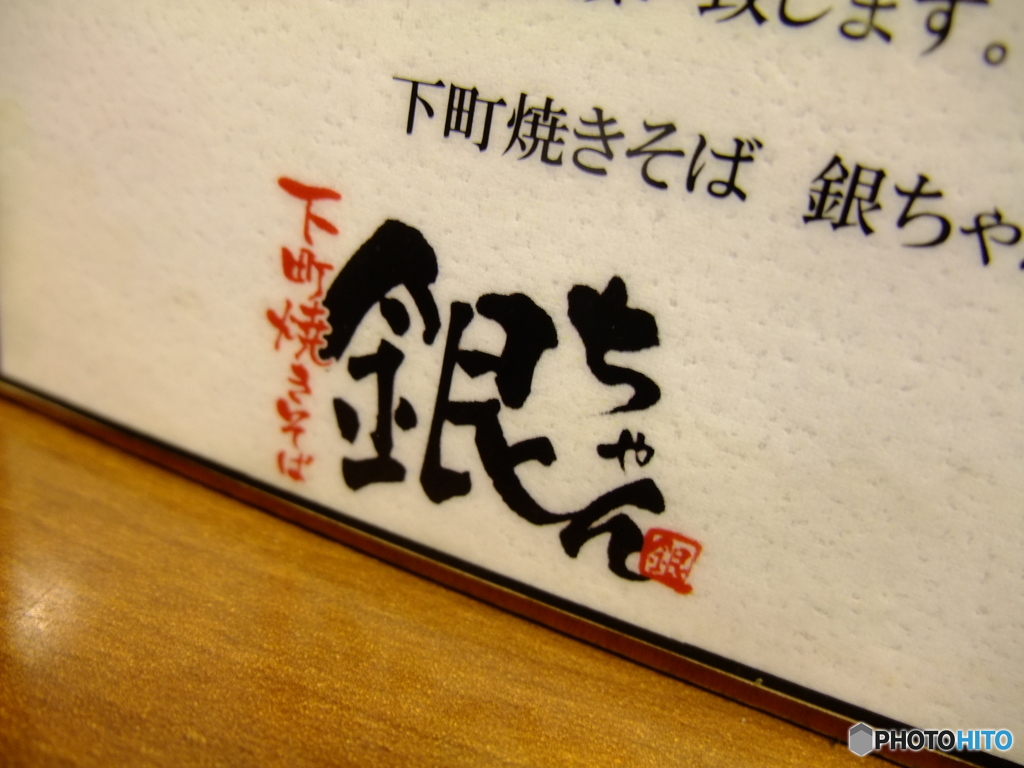 致します。
下町焼きそば 銀ちゃ
下町焼きそば
銀ちゃん
銀
PHOTOHITO